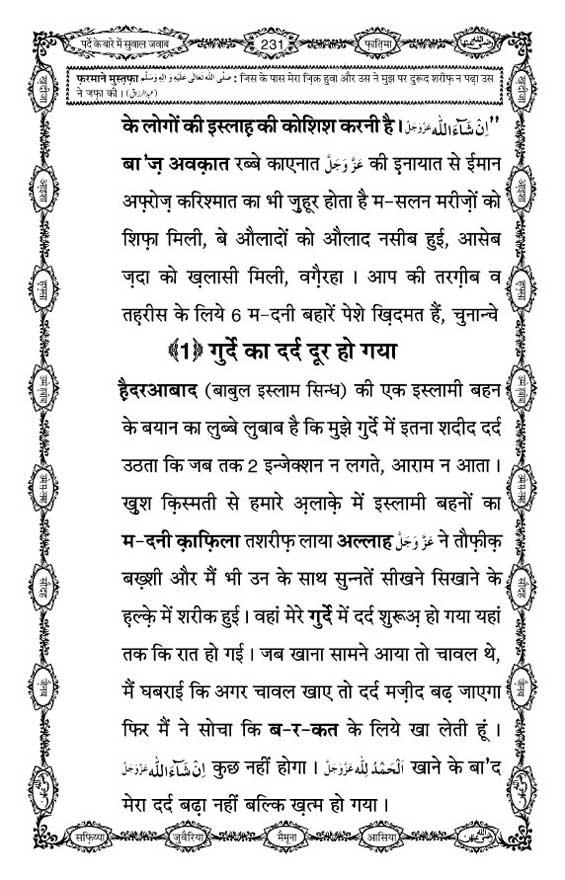 पर्दे के बारे में सुवाल जवाब 231 फ़ातिमा
फ़रमाने मुस्तफ़ा صَلَّى اللّٰهُ تَعَالٰى عَلَيْهِ وَاٰلِهٖ وَسَلَّم : जिस के पास मेरा ज़िक्र हुवा और उस ने मुझ पर दुरूद शरीफ़ न पढ़ा उस
ने जफ़ा की। (عبدالرزاق)
के लोगों की इस्लाह की कोशिश करनी है। اِنْ شَآءَ اللّٰه عَزَّوَجَلَّ"
बा'ज़ अवक़ात रब्बे काएनात عَزَّوَجَلَّ की इनायात से ईमान
अफ़्रोज़ करिश्मात का भी ज़ुहूर होता है म-सलन मरीज़ों को
शिफ़ा मिली, बे औलादों को औलाद नसीब हुई, आसेब
ज़दा को ख़लासी मिली, वग़ैरहा । आप की तरग़ीब व
तह़रीस के लिये 6 म-दनी बहारें पेशे ख़िदमत हैं, चुनान्चे
《1》 गुर्दे का दर्द दूर हो गया
हैदरआबाद (बाबुल इस्लाम सिन्ध) की एक इस्लामी बहन
के बयान का लुब्बे लुबाब है कि मुझे गुर्दे में इतना शदीद दर्द
उठता कि जब तक 2 इन्जेक्शन न लगते, आराम न आता ।
खुश क़िस्मती से हमारे अ़लाक़े में इस्लामी बहनों का
म-दनी क़ाफ़िला तशरीफ़ लाया अल्लाह عَزَّوَجَلَّ ने तौफ़ीक़
बख़्शी और मैं भी उन के साथ सुन्नतें सीखने सिखाने के
ह़ल्के़ में शरीक हुई। वहां मेरे गुर्दे में दर्द शुरूअ़ हो गया यहां
तक कि रात हो गई । जब खाना सामने आया तो चावल थे,
मैं घबराई कि अगर चावल खाए तो दर्द मज़ीद बढ़ जाएगा
फिर मैं ने सोचा कि ब-र-कत के लिये खा लेती हूं ।
اِنْ شَآءَ اللّٰه عَزَّوَجَلَّ कुछ नहीं होगा । اَلْحَمْدُ لِلّٰه عَزَّوَجَلَّ खाने के बा'द
मेरा दर्द बढ़ा नहीं बल्कि ख़त्म हो गया ।
सफ़िय्या जुवैरिया मैमूना आसिया